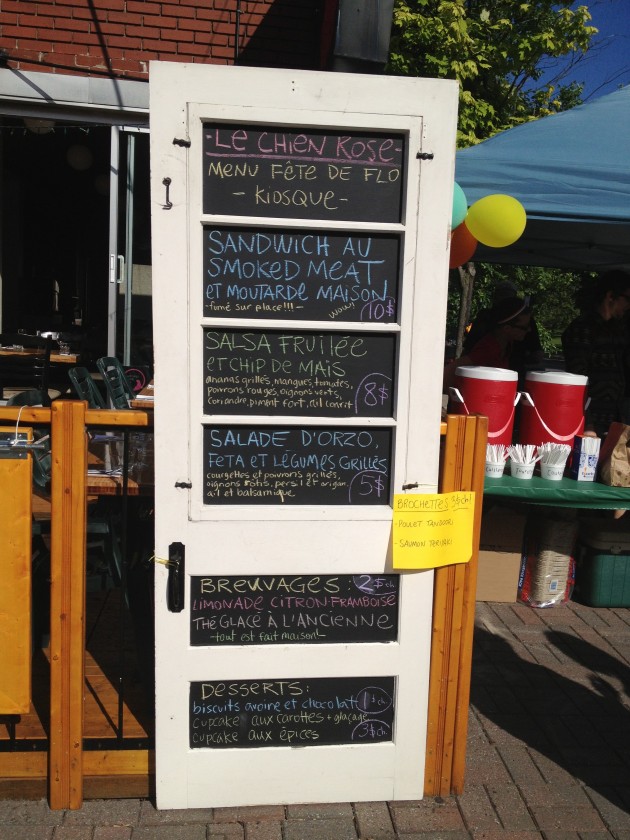 -LE CHIEN ROSE-
MENU FÊTE DE FLO
-KIOSQUE-
SANDWICH AU
SMOKED MEAT
ET MOUTARDE MAISON
-fumé sur place!!!- wow!! 10$
SALSA FRUITÉE
ET CHIP DE MAÏS
ananas grillés, mangues, tomates,
poivrons rouges, oignons verts,
coriandre, piment fort, ail confit
8$
SALADE D'ORZO,
FETA ET LÉGUMES GRILLÉS
courgettes et poivrons grillés,
oignons rôtis, persil et origan
ail et balsamique
5$
BROCHETTES 3$/ch
-POULET TANDOORI
-SAUMON TERIYAKI
BREUVAGES: 2$ ch.
LIMONADE CITRON-FRAMBOISE
THÉ GLACÉ À L'ANCIENNE
-tout est fait maison!-
DESSERTS:
biscuits avoine et chocolat 1$ ch
cupcake aux carottes + glaçage
cupcake aux épices 3$ ch.